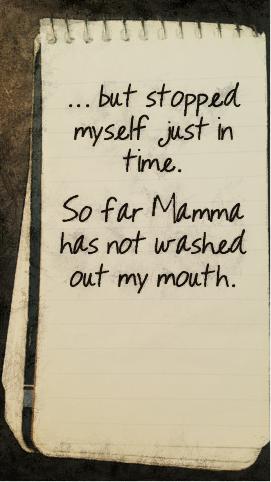 ... but stopped
myself just in
time.
So far Mamma
has not washed
out my mouth.